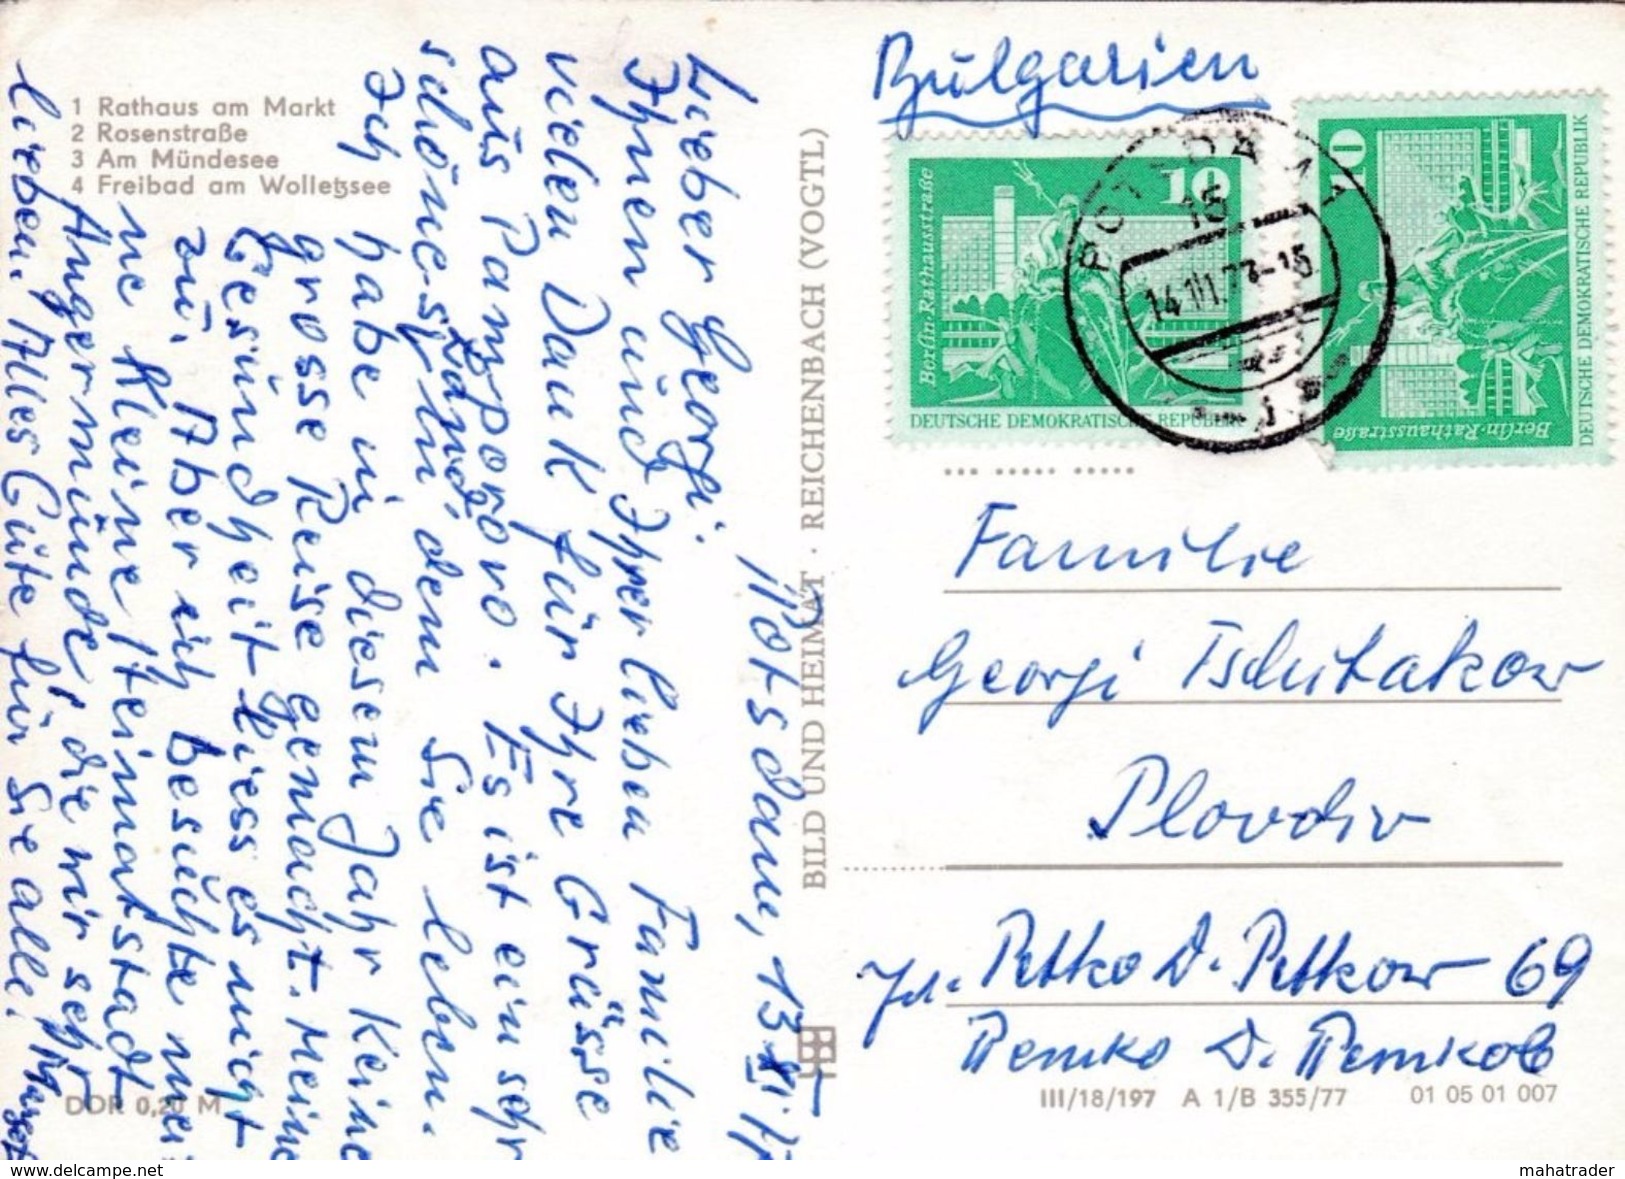 1 Rathaus am Markt
2 Rosenstraße
3 Am Mündesee
4 Freibad am Wolletzsee
Potsdam, 13.
Lieber Georgi!
Ihnen und Ihrer lieben Familie
vielen Dank für Ihre Grüsse
aus Pamporovo. Es ist ein sehr
schönes Land, in dem Sie leben.
Ich habe in diesem Jahr keine
grosse Reise gemacht. Meine
Gesundheit liess es nicht
zu. Aber ich besuchte mei
ne kleine Heimatstadt
Angermünde, die mir sehr
lieben. Alles Gute für Sie alle!
DDR 0,20 M
BILD UND HEIMAT · REICHENBACH (VOGTL)
Bulgarien
10
Berlin-Rathausstraße
DEUTSCHE DEMOKRATISCHE REPUBLIK
10
Berlin-Rathausstraße
DEUTSCHE DEMOKRATISCHE REPUBLIK
POTSDAM 1
15
Familie
Georgi Tschitakow
Plovdiv
Petko D. Petkow 69
Петко Д. Петков
III/18/197 A 1/B 355/77 01 05 01 007
www.delcampe.net
mahatrader